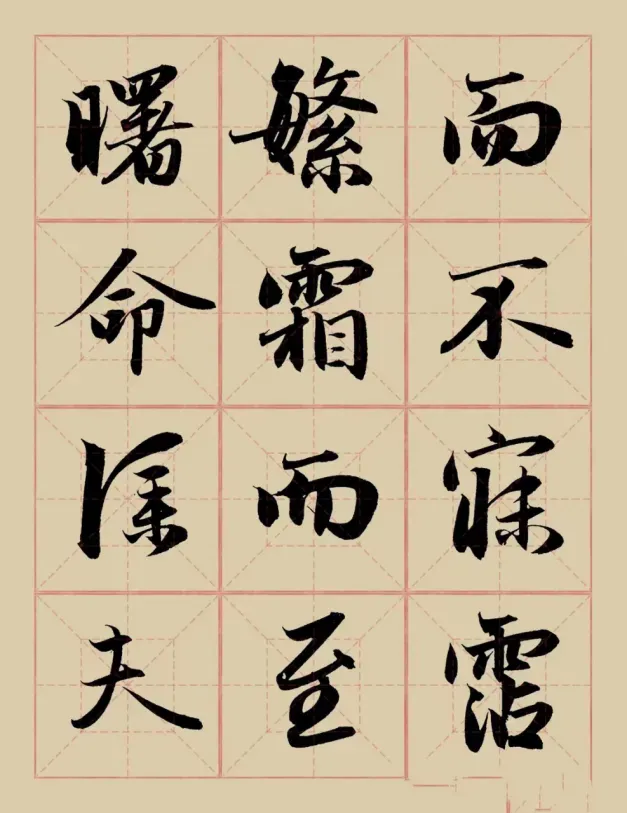 而不寐霑
繁霜而至
曙命僕夫